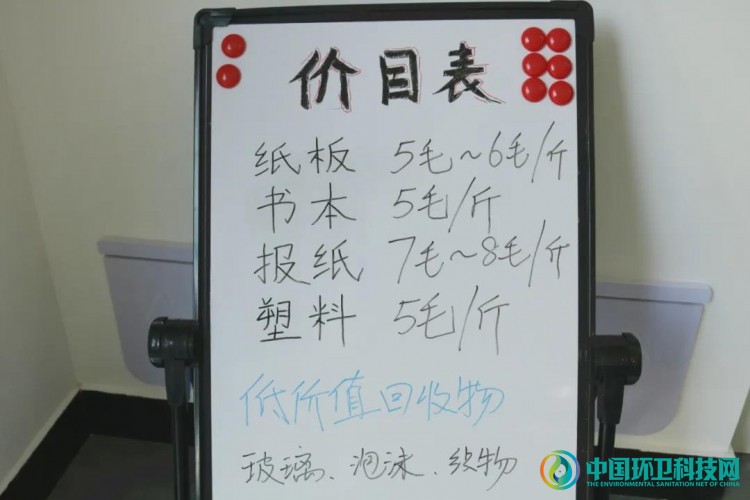 价目表
纸板 5毛~6毛/斤
书本 5毛/斤
报纸 7毛~8毛/斤
塑料 5毛/斤
低价值回收物
玻璃、泡沫、织物
中国环卫科技网
THE ENVIRONMENTAL SANITATION NET OF CHINA